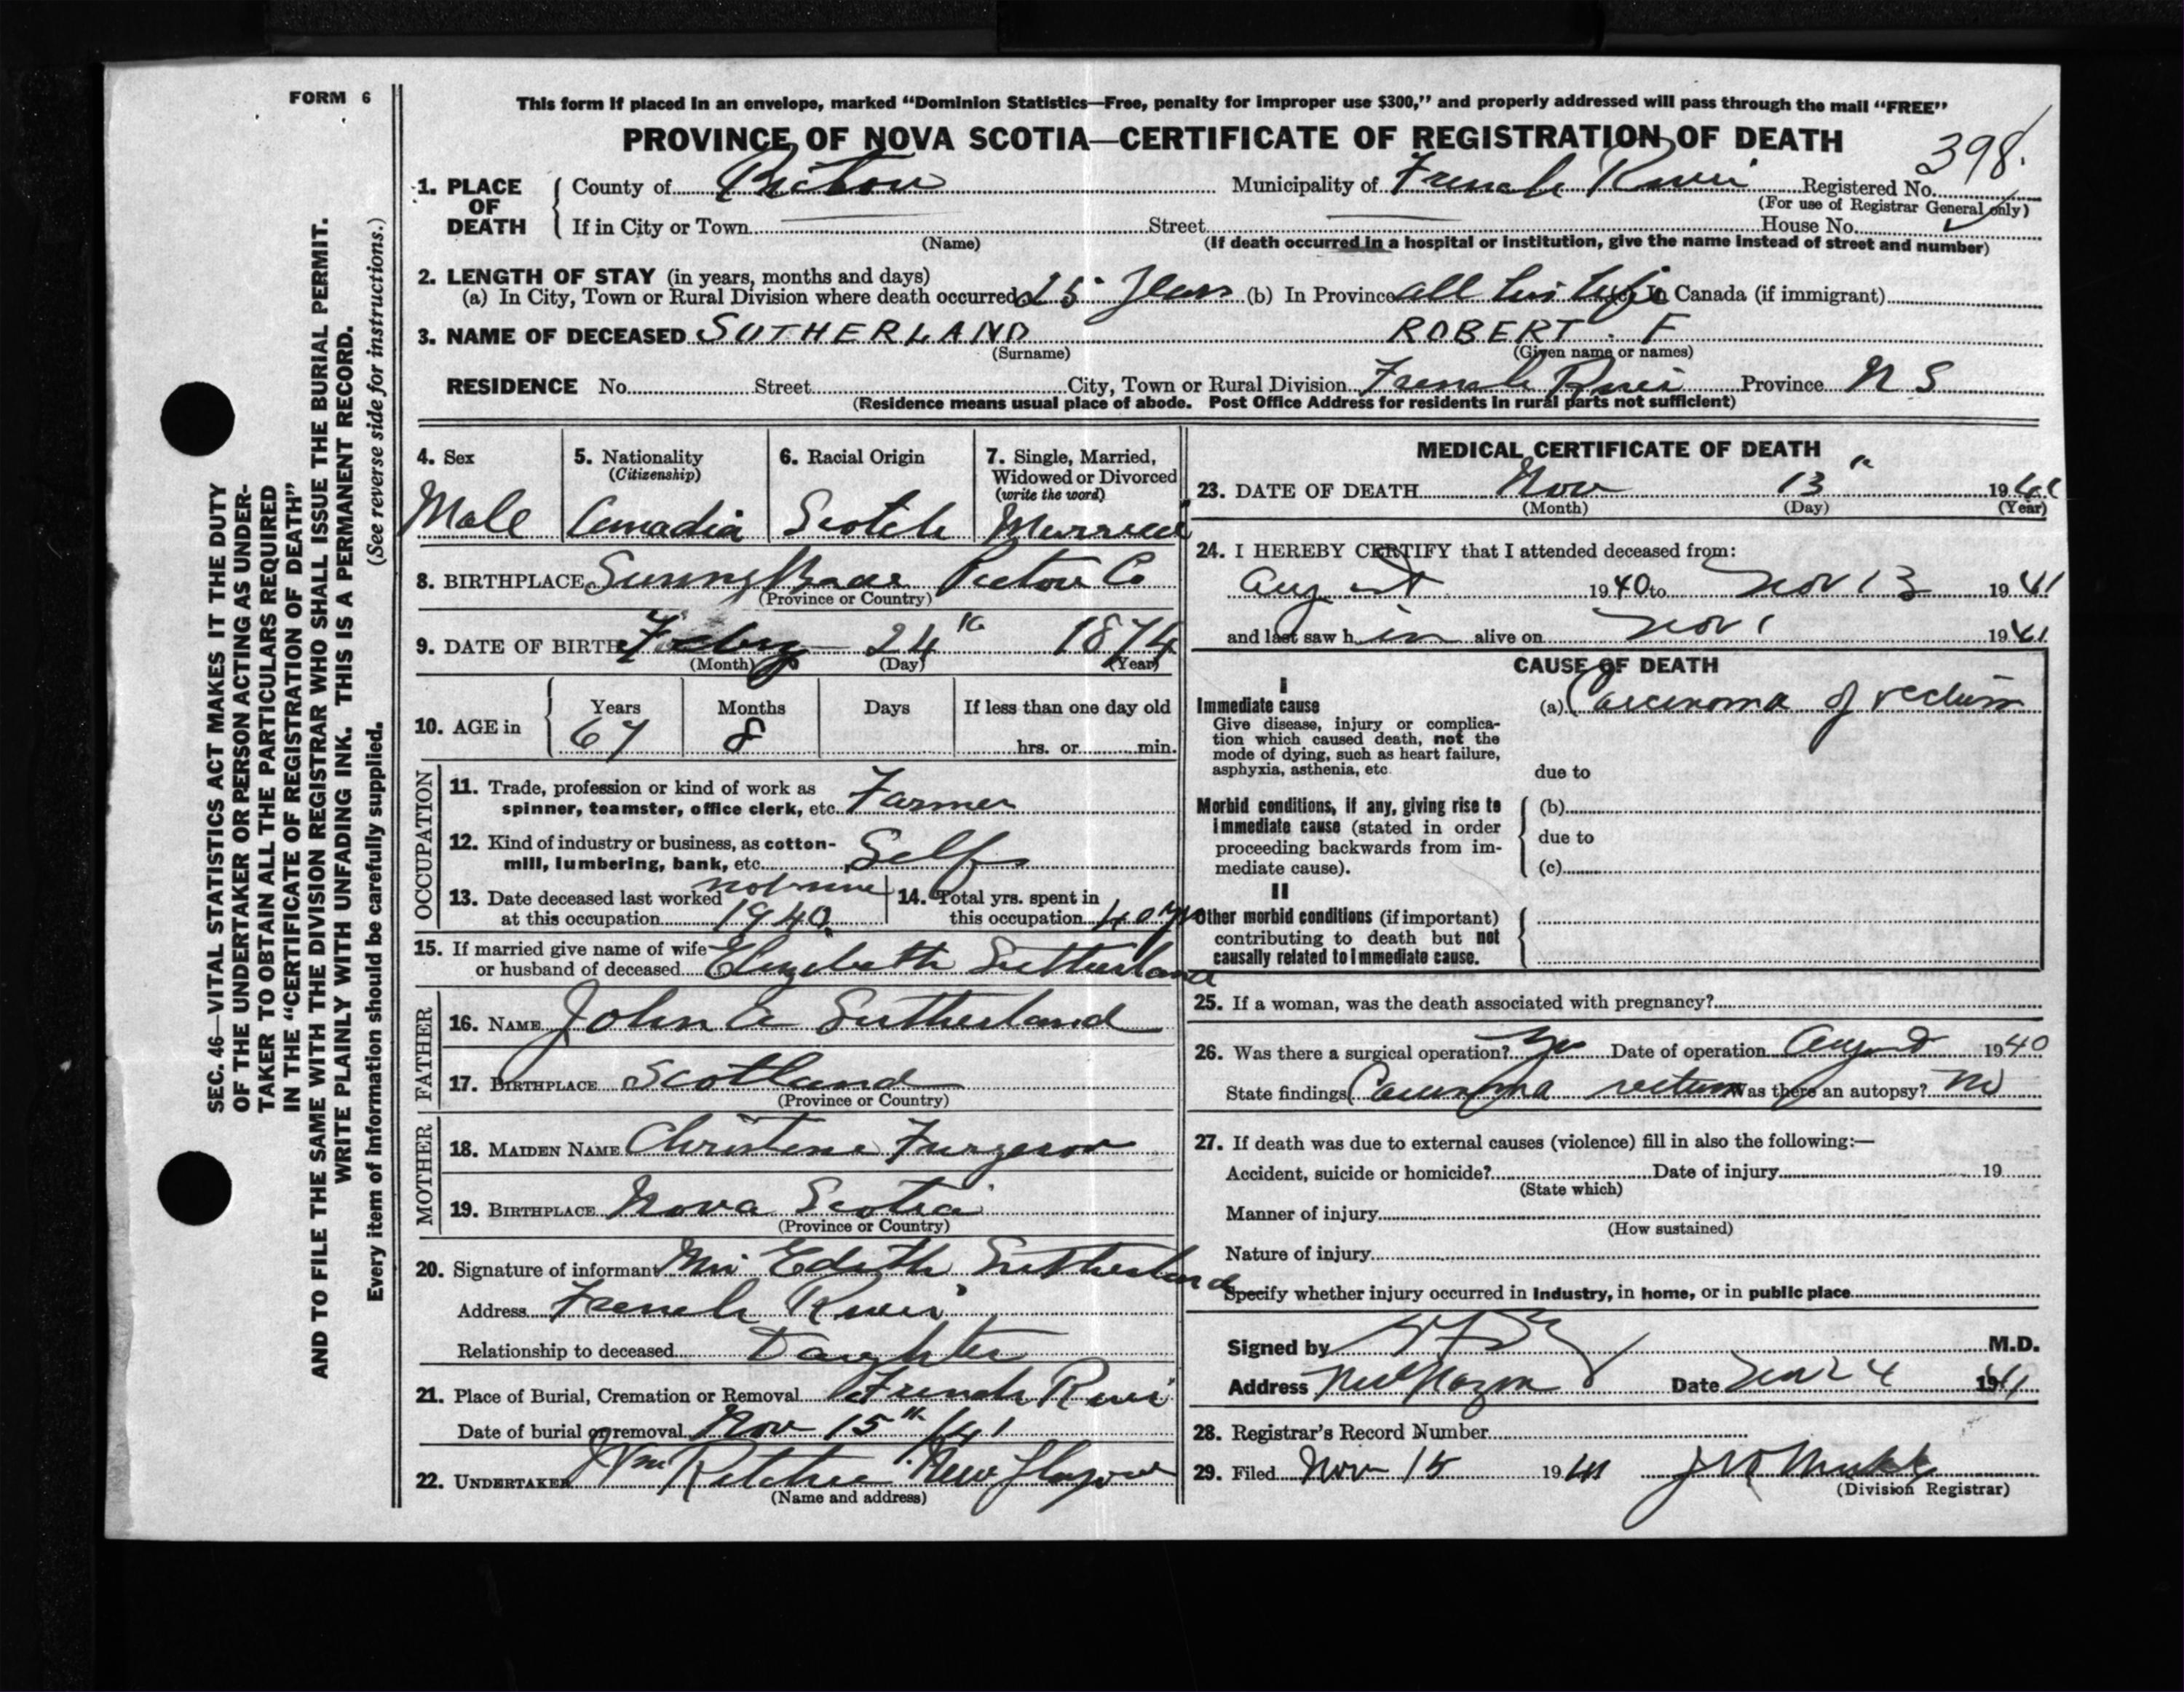 FORM 6
This form if placed in an envelope, marked "Dominion Statistics—Free, penalty for improper use $300," and properly addressed will pass through the mail "FREE"
PROVINCE OF NOVA SCOTIA—CERTIFICATE OF REGISTRATION OF DEATH
398.
1. PLACE OF DEATH County of Pictou Municipality of French River Registered No.
(For use of Registrar General only)
If in City or Town Street House No.
(Name) (If death occurred in a hospital or institution, give the name instead of street and number)
2. LENGTH OF STAY (in years, months and days)
(a) In City, Town or Rural Division where death occurred 25 Years (b) In Province all his life In Canada (if immigrant)
3. NAME OF DECEASED SUTHERLAND ROBERT. F
(Surname) (Given name or names)
RESIDENCE No. Street City, Town or Rural Division French River Province N S
(Residence means usual place of abode. Post Office Address for residents in rural parts not sufficient)
4. Sex 5. Nationality 6. Racial Origin 7. Single, Married,
(Citizenship) Widowed or Divorced
(write the word)
Male Canadia Scotch Married
8. BIRTHPLACE Sunny Brae Pictou Co
(Province or Country)
9. DATE OF BIRTH 24 1874
(Month) (Day) (Year)
10. AGE in Years Months Days If less than one day old
67 8 hrs. or min.
OCCUPATION
11. Trade, profession or kind of work as
spinner, teamster, office clerk, etc. Farmer
12. Kind of industry or business, as cotton-
mill, lumbering, bank, etc. Self
13. Date deceased last worked
at this occupation 1940
14. Total yrs. spent in
this occupation 40 yrs
15. If married give name of wife
or husband of deceased Elizabeth Sutherland
FATHER
16. NAME John A Sutherland
17. BIRTHPLACE Scotland
(Province or Country)
MOTHER
18. MAIDEN NAME Christene Furgeson
19. BIRTHPLACE Nova Scotia
(Province or Country)
20. Signature of informant Edith Sutherland
Address French River
Relationship to deceased Daughter
21. Place of Burial, Cremation or Removal French River
Date of burial or removal Nov 15th /41
22. UNDERTAKER Ritchie New Glasgow
(Name and address)
MEDICAL CERTIFICATE OF DEATH
23. DATE OF DEATH Nov 13th 1941
(Month) (Day) (Year)
24. I HEREBY CERTIFY that I attended deceased from:
August 1940 to Nov 13 1941
and last saw him alive on Nov 1 1941
CAUSE OF DEATH
I
Immediate cause (a) Carcinoma of rectum
Give disease, injury or complica-
tion which caused death, not the
mode of dying, such as heart failure,
asphyxia, asthenia, etc. due to
Morbid conditions, if any, giving rise to (b)
immediate cause (stated in order
proceeding backwards from im- due to
mediate cause). (c)
II
Other morbid conditions (if important)
contributing to death but not
causally related to immediate cause.
25. If a woman, was the death associated with pregnancy?
26. Was there a surgical operation? Yes Date of operation August 1940
State findings Carcinoma rectum Was there an autopsy? No
27. If death was due to external causes (violence) fill in also the following:—
Accident, suicide or homicide? Date of injury 19
(State which)
Manner of injury
(How sustained)
Nature of injury
Specify whether injury occurred in industry, in home, or in public place
Signed by M.D.
Address New Glasgow Date 24 1941
28. Registrar's Record Number
29. Filed Nov 15 1941
(Division Registrar)
SEC. 46—VITAL STATISTICS ACT MAKES IT THE DUTY
OF THE UNDERTAKER OR PERSON ACTING AS UNDER-
TAKER TO OBTAIN ALL THE PARTICULARS REQUIRED
IN THE "CERTIFICATE OF REGISTRATION OF DEATH"
AND TO FILE THE SAME WITH THE DIVISION REGISTRAR WHO SHALL ISSUE THE BURIAL PERMIT.
WRITE PLAINLY WITH UNFADING INK. THIS IS A PERMANENT RECORD.
Every item of information should be carefully supplied. (See reverse side for instructions.)